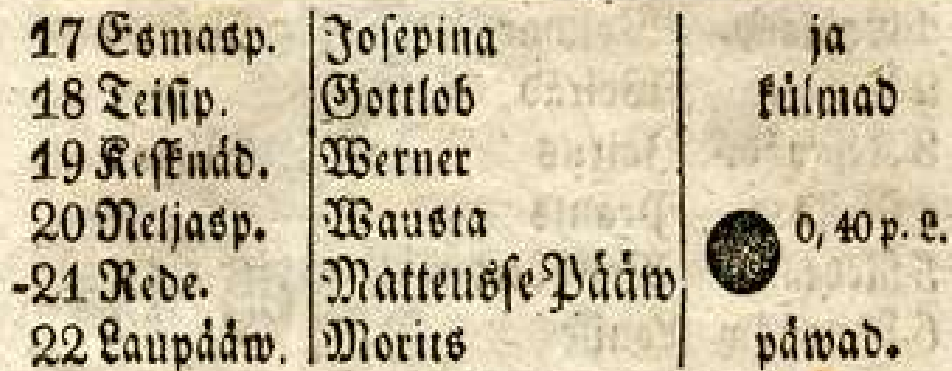 17 Esmasp. Josepina ja
18 Teisip. Gottlob külmad
19 Kesknäd. Werner
20 Neljasp. Wausta 0, 40 p. L.
-21 Rede. Matteusse Pääw
22 Laupääw. Morits päwad.